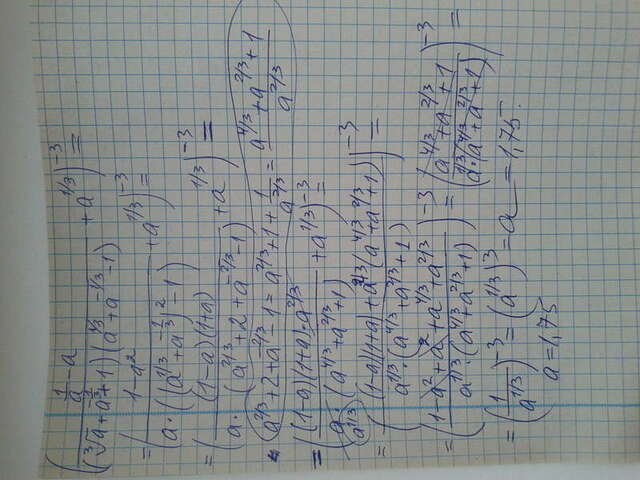 ((1/a - a)/((³√a + a^(-1/3) + 1)(a^(1/3) + a^(-1/3) - 1)) + a^(1/3))^(-3) =
= ((1 - a²)/(a·((a^(1/3) + a^(-1/3))² - 1)) + a^(1/3))^(-3) =
= (((1-a)(1+a))/(a·(a^(2/3) + 2 + a^(-2/3) - 1)) + a^(1/3))^(-3) =
a^(2/3) + 2 + a^(-2/3) - 1 = a^(2/3) + 1 + 1/a^(2/3) = (a^(4/3) + a^(2/3) + 1)/a^(2/3)
= (((1-a)(1+a)·a^(2/3))/(a·(a^(4/3) + a^(2/3) + 1)) + a^(1/3))^(-3) =
a^(1/3)
= (((1-a)(1+a) + a^(2/3)(a^(4/3) + a^(2/3) + 1))/(a^(1/3)·(a^(4/3) + a^(2/3) + 1)))^(-3) =
= ((1 - a² + a² + a^(4/3) + a^(2/3))/(a^(1/3)·(a^(4/3) + a^(2/3) + 1)))^(-3) = ((a^(4/3) + a^(2/3) + 1)/(a^(1/3)·(a^(4/3) + a^(2/3) + 1)))^(-3) =
= (1/a^(1/3))^(-3) = (a^(1/3))^3 = a = 1,75.
a = 1,75